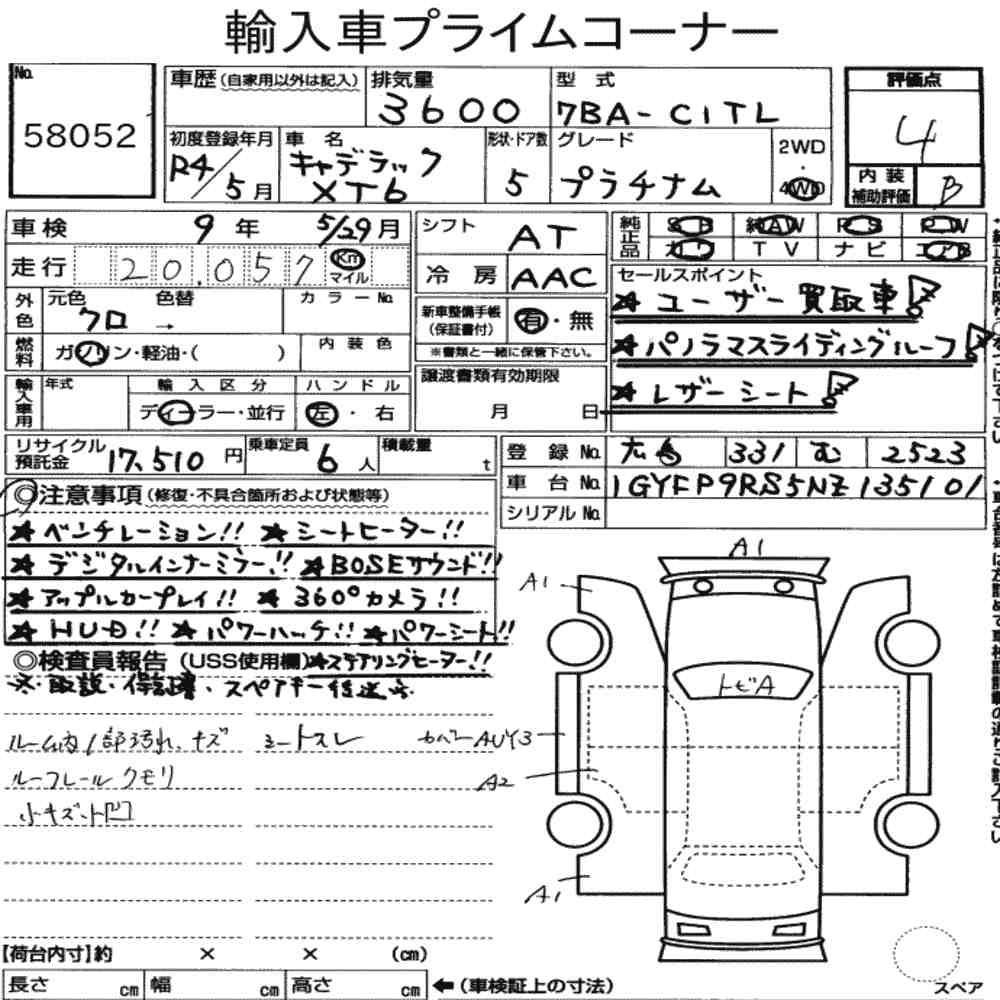 輸入車プライムコーナー
No.
58052
車歴(自家用以外は記入)
排気量
3600
型式
7BA-C1TL
評価点
4
初度登録年月
R4/5月
車名
キャデラック
XT6
形状・ドア数
5
グレード
プラチナム
2WD
・
4WD
内装
補助評価
B
車検
9年 5/29月
シフト
AT
純正品
SH 純AW PS PW
カワ TV ナビ エアB
走行
20,057
Km
マイル
冷房
AAC
セールスポイント
★ユーザー買取車!
★パノラマスライディングルーフ!
★レザーシート!
外色
元色 色替
クロ →
カラーNo.
新車整備手帳
(保証書付)
有・無
※書類と一緒に保管下さい。
燃料
ガソリン・軽油・( )
内装色
譲渡書類有効期限
月 日
輸入車用
年式
輸入区分
ディーラー・並行
ハンドル
左・右
リサイクル
預託金
17,510円
乗車定員
6人
積載量
t
登録No.
広島 331 む 2523
車台No.
1GYFP9RS5NZ135101
シリアルNo.
◎注意事項(修復・不具合箇所および状態等)
★ベンチレーション!! ★シートヒーター!!
★デジタルインナーミラー!! ★BOSEサウンド!!
★アップルカープレイ!! ★360°カメラ!!
★HUD!! ★パワーハッチ!! ★パワーシート!!
◎検査員報告(USS使用欄)★ステアリングヒーター!!
※取説・保証書・スペアキー後送
ルーム内1部汚れ、キズ シートスレ
ルーフレールクモリ
小キズ・凹
A1
A1
トビA
カバーAUY3
A2
A1
【荷台内寸】約 × × (cm)
長さ cm 幅 cm 高さ cm
←(車検証上の寸法)
スペア